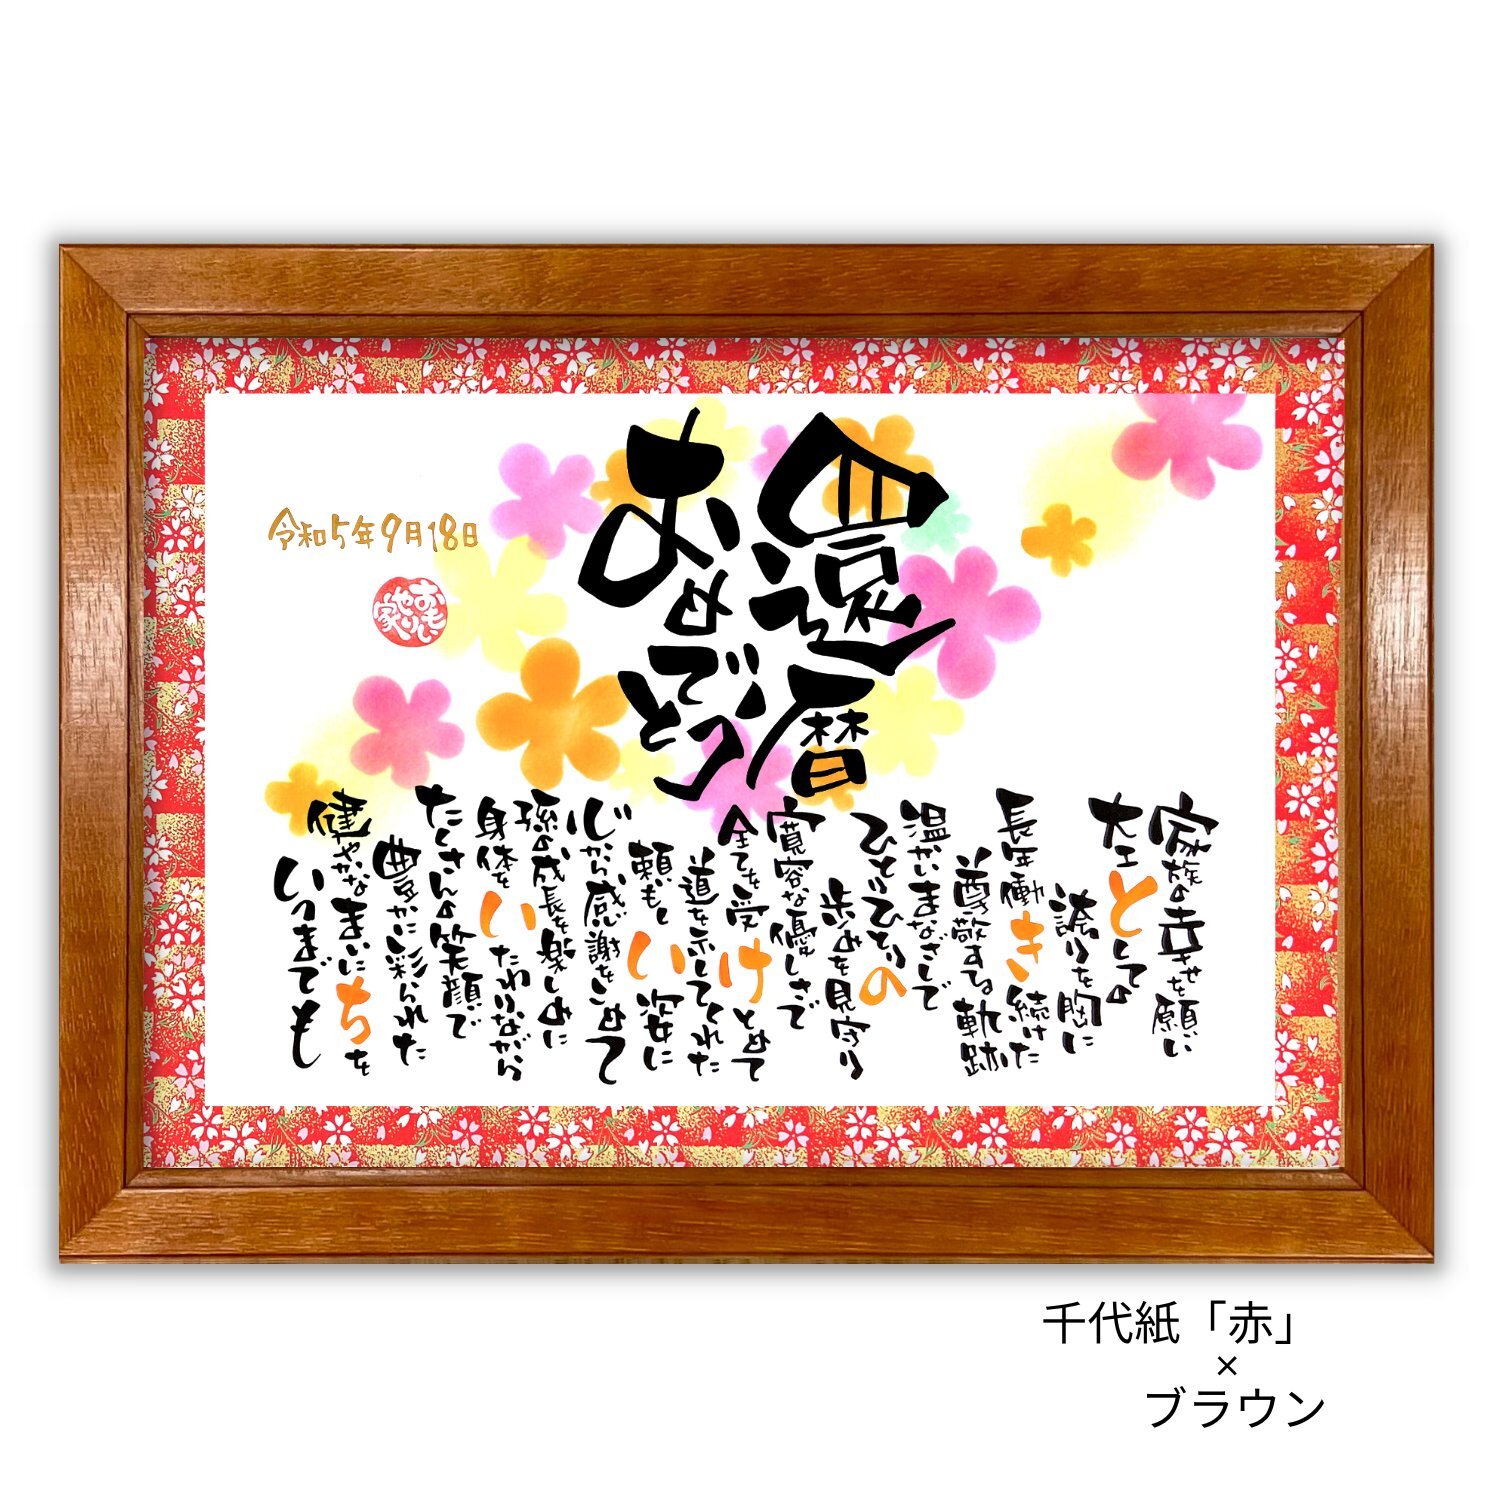 還暦
おめでとう
家族の幸せを願い
大工としての
誇りを胸に
長年働き続けた
尊敬する軌跡
温かいまなざしで
ひとりひとりの
歩みを見守り
寛容な優しさで
全てを受けとめて
道を示してくれた
頼もしい姿に
心から感謝をこめて
孫の成長を楽しみに
身体をいたわりながら
たくさんの笑顔で
豊かに彩られた
健やかなまいにちを
いつまでも
令和5年9月18日
おもいやり家
千代紙「赤」
×
ブラウン